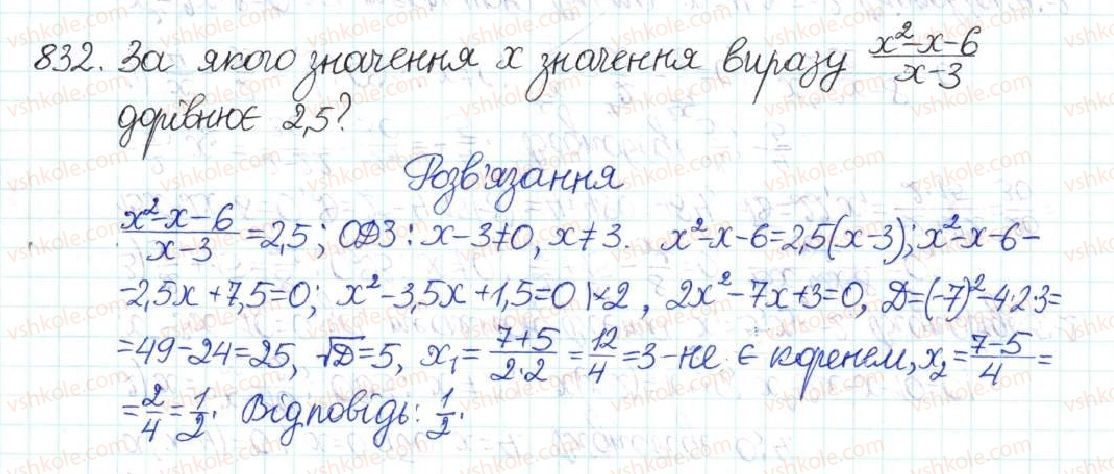 832. За якого значення x значення виразу (x²-x-6)/(x-3)
дорівнює 2,5?
Розв'язання
(x²-x-6)/(x-3) = 2,5; ОДЗ: x-3≠0, x≠3. x²-x-6=2,5(x-3); x²-x-6-
-2,5x+7,5=0; x²-3,5x+1,5=0 |×2, 2x²-7x+3=0, D=(-7)²-4·2·3=
=49-24=25, √D=5, x₁=(7+5)/(2·2)=12/4=3-не є коренем, x₂=(7-5)/4=
=2/4=1/2. Відповідь: 1/2.